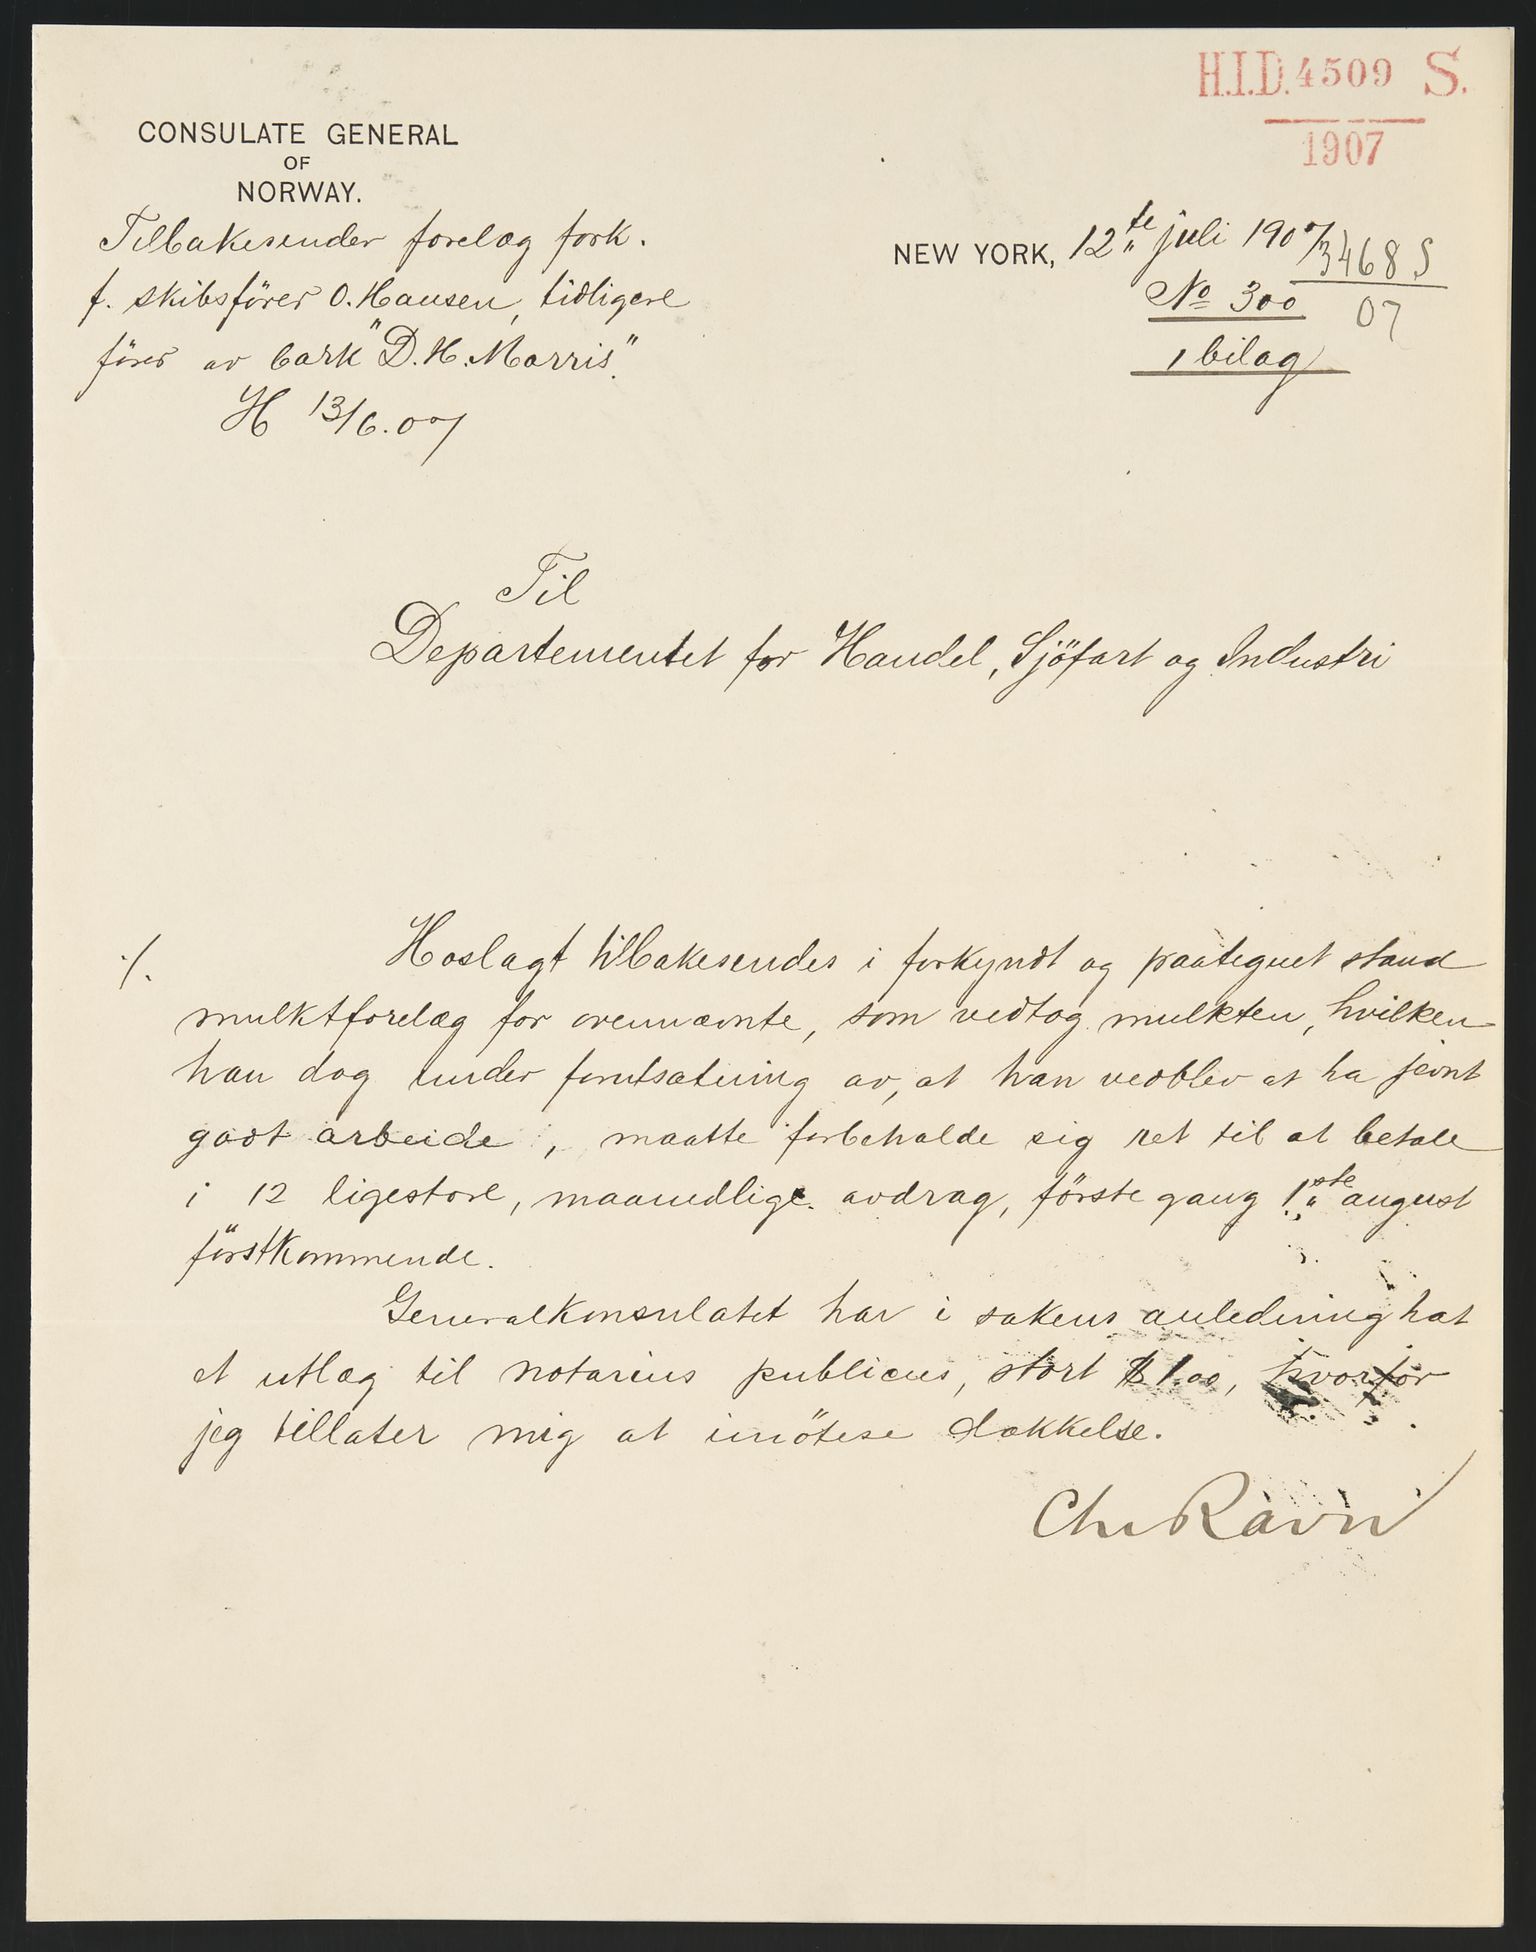 H.I.D. 4509 S.
1907
CONSULATE GENERAL
OF
NORWAY.
Tilbakesender forelæg fork.
f. skibsfører O. Hansen, tidligere
fører av bark "D. H. Morris".
H 13/6.07
NEW YORK, 12te juli 1907
3468 S
07
No 300
1 bilag
Til
Departementet for Handel, Sjöfart og Industri
./. Hoslagt tilbakesendes i forkyndt og paategnet stand
mulktforelæg for ovennævnte, som vedtog mulkten, hvilken
han dog under forutsætning av, at han vedblev at ha jevnt
godt arbeide, maatte forbeholde sig ret til at betale
i 12 ligestore, maanedlige avdrag, förste gang 1ste august
förstkommende.
Generalkonsulatet har i sakens anledning hat
et utlæg til notarius publicus, stort $1.00, hvorfor
jeg tillater mig at imötese dækkelse.
Chr Ravn